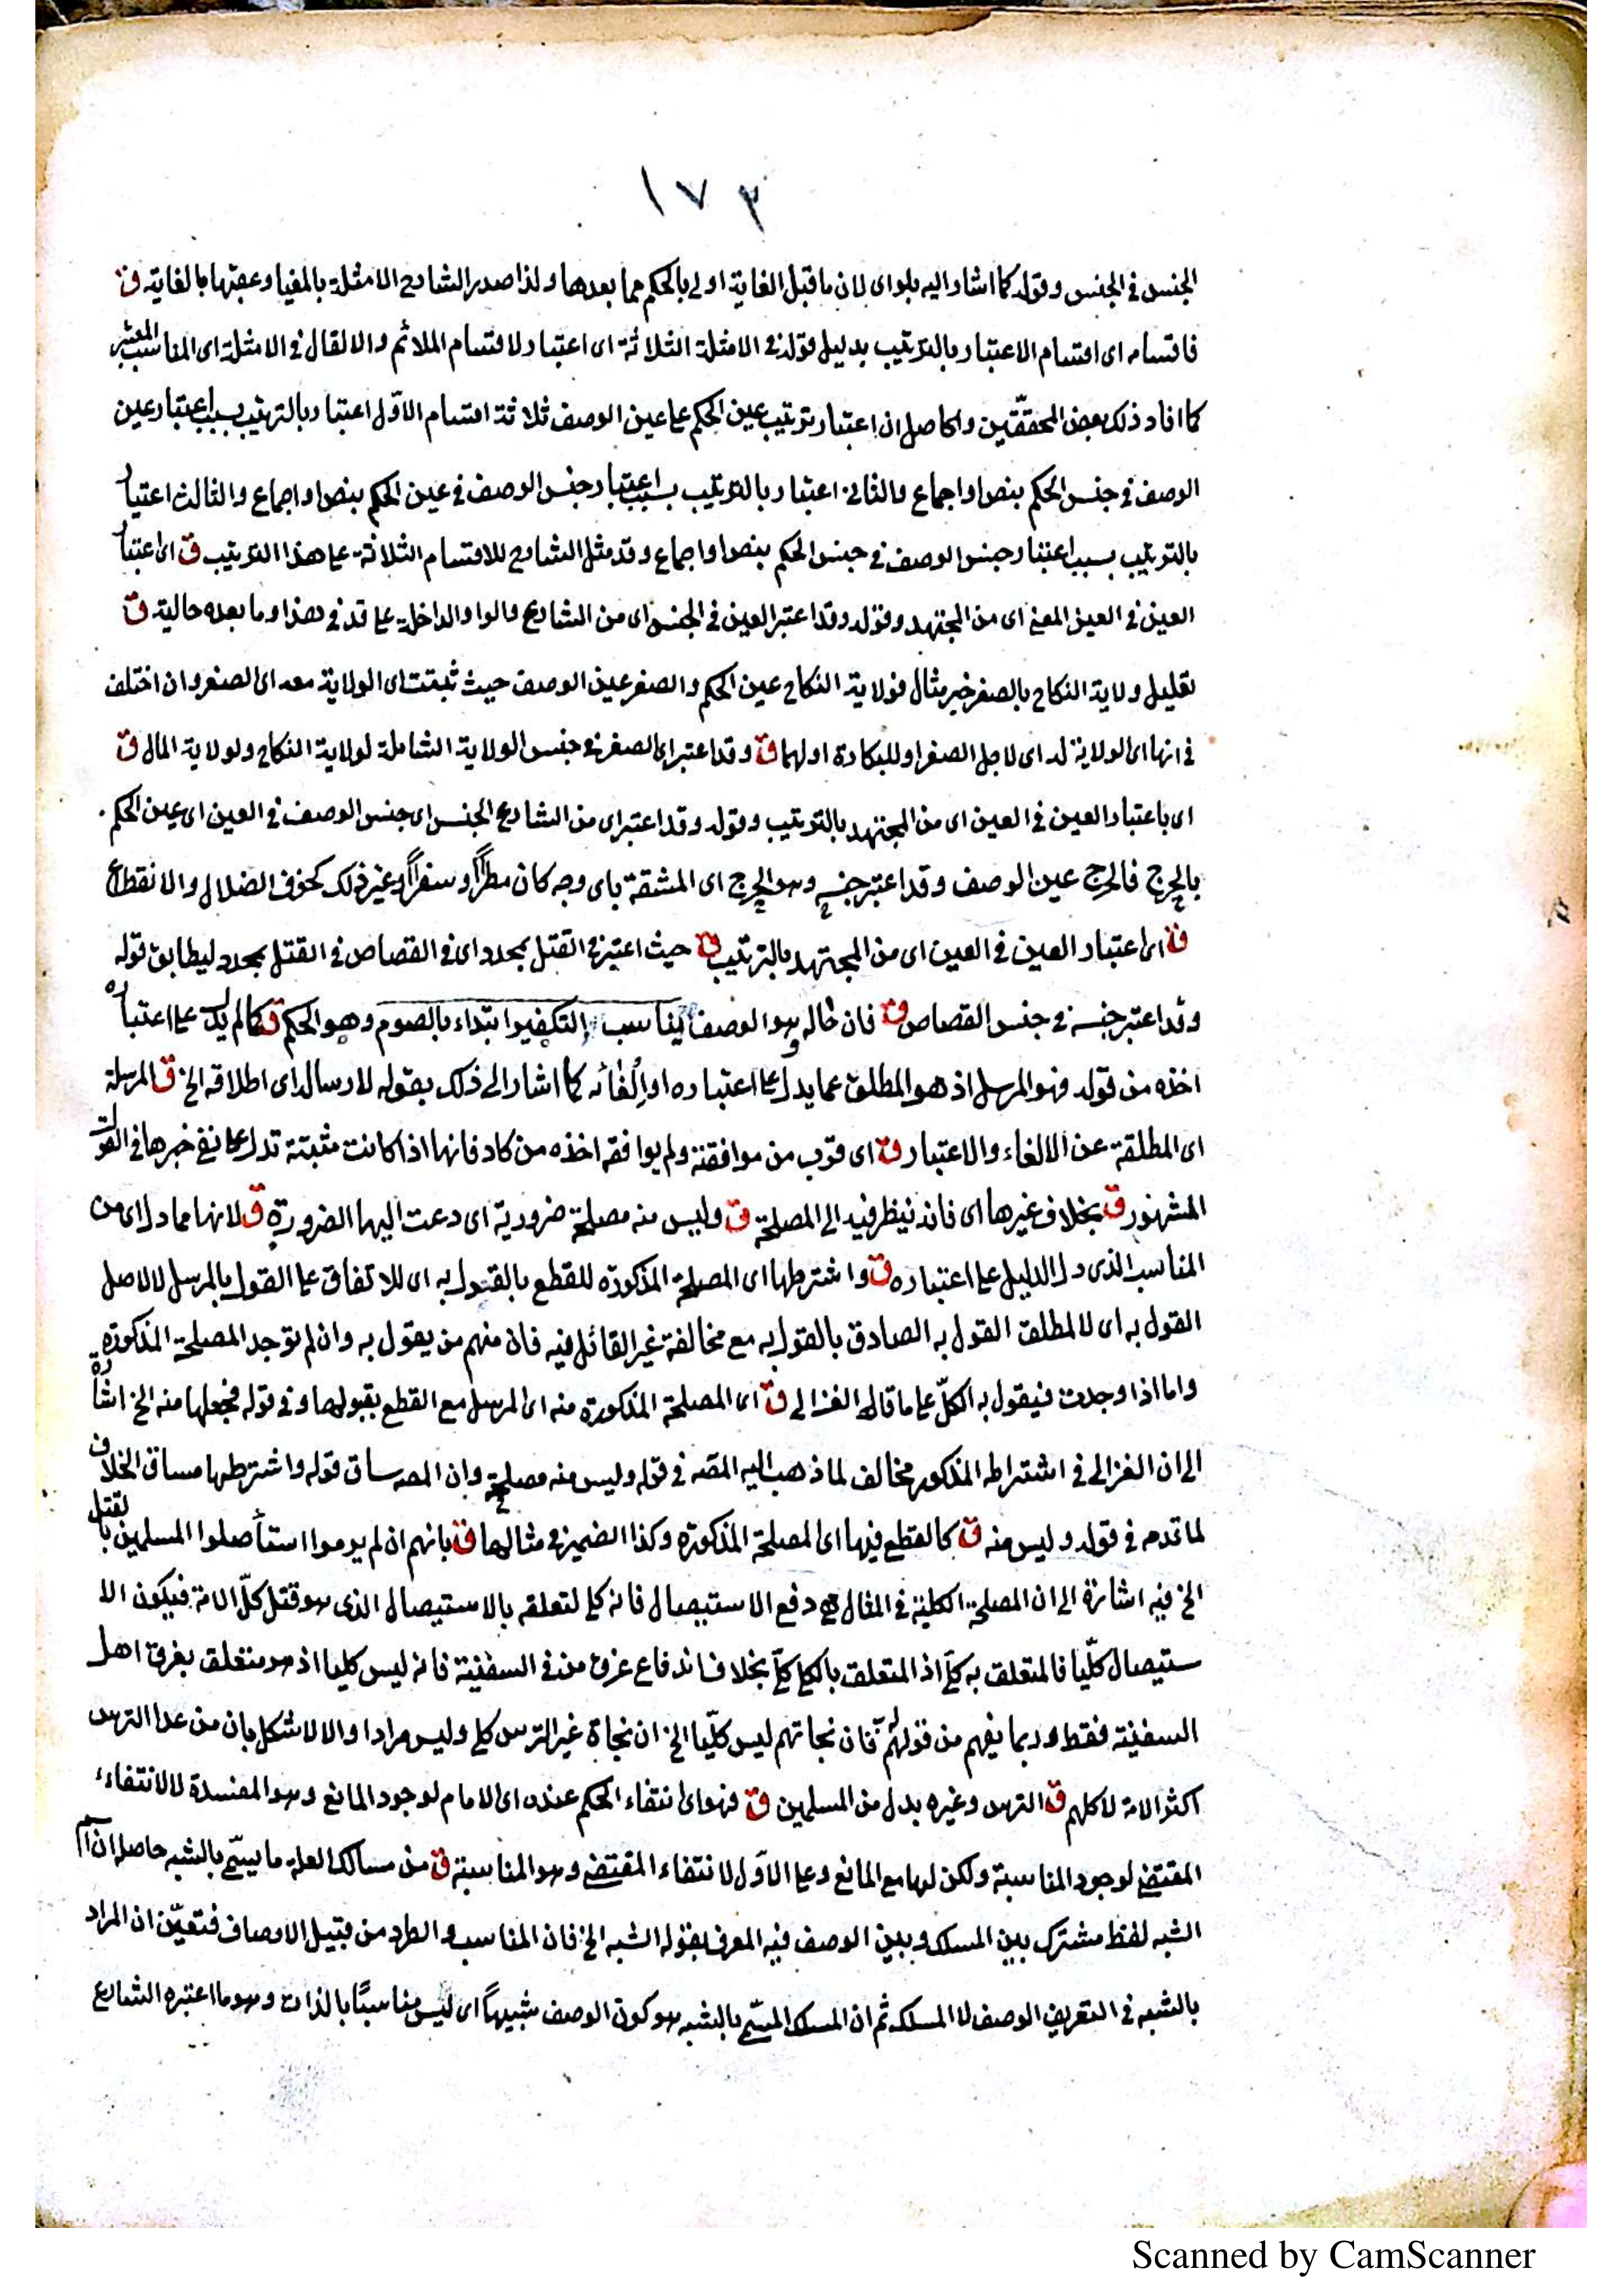 ١٧٣
الجنس في الجنس وقوله كما اشار اليه بلو اى لان ما قبل الغاية اولى بالحكم مما بعدها ولذا صدر الشارح الامثلة بالمغيا وعقبها بالغاية ق
فاقسامه اى اقسام الاعتبار بالترتيب بدليل قوله في الامثلة الثلاثة اى اعتبار لا اقسام الملائم والا لقال في الامثلة اى المناسب المعتبر
كما افاد ذلك بعض المحققين والحاصل ان اعتبار ترتيب عين الحكم على عين الوصف ثلاثة اقسام الاوّل اعتبار بالترتيب بسبب اعتبار عين
الوصف في جنس الحكم بنص او اجماع والثاني اعتبار بالترتيب بسبب اعتبار جنس الوصف في عين الحكم بنص او اجماع والثالث اعتبار
بالترتيب بسبب اعتبار جنس الوصف في جنس الحكم بنص او اجماع وقد مثل الشارح للاقسام الثلاثة على هذا الترتيب ق اى اعتبار
العين في العين المعنى اى من المجتهد وقوله وقد اعتبر العين في الجنس اى من الشارع والواو الداخلة على قد في هذا وما بعده حالية ق
تعليل ولاية النكاح بالصغر خبر مثال فولاية النكاح عين الحكم والصغر عين الوصف حيث ثبتت اى الولاية معه اى الصغر وان اختلف
في انها اى الولاية له اى لاجل الصغر او للبكارة او لهما ق وقد اعتبر اى الصغر في جنس الولاية الشاملة لولاية النكاح ولولاية المال ق
اى باعتبار العين في العين اى من المجتهد بالترتيب وقوله وقد اعتبر اى من الشارع الجنس اى جنس الوصف في العين اى عين الحكم
بالحرج فالحرج عين الوصف وقد اعتبر جنسه وهو الحرج اى المشقة باى وجه كان مطراً او سفراً او غير ذلك كخوف الضلال والانقطاع
ق اى اعتبار العين في العين اى من المجتهد بالترتيب ق حيث اعتبر في القتل بمحدد اى في القصاص في القتل بمحدد ليطابق قوله
وقد اعتبر جنسه في جنس القصاص ق فان حاله وهو الوصف يناسب التكفير ابتداء بالصوم وهو الحكم ق كما لم يدل على اعتباره
اخذه من قوله فهو المرسل اذ هو المطلق عما يدل على اعتباره او إلغائه كما اشار الى ذلك بقوله لارساله اى اطلاقه الخ ق المرسلة
اى المطلقة عن الالغاء والاعتبار ق اى قرب من موافقته ولم يوافقه اخذه من كاد فانها اذا كانت مثبتة تدل على نفي خبرها في القول
المشهور ق بخلاف غيرها اى فانه ينظر فيه الى المصلحة ق وليس منه مصلحة ضرورية اى دعت اليها الضرورة ق لانها مما دل اى من
المناسب الذى دل الدليل على اعتباره ق واشترطها اى المصلحة المذكورة للقطع بالقول به اى للاتفاق على القول بالمرسل لا لاصل
القول به اى لا لمطلق القول به الصادق بالقول به مع مخالفة غير القائل فيه فان منهم من يقول به وان لم توجد المصلحة المذكورة
واما اذا وجدت فيقول به الكلّ على ما قاله الغزالى ق اى المصلحة المذكورة منه اى المرسل مع القطع بقبولها وفي قوله فجعلها منه الخ اشارة
الى ان الغزالى في اشتراطه المذكور مخالف لما ذهب اليه المصه في قوله وليس منه مصلحة وان المصه ساق قوله واشترطها مساق الخلاف
لما تقدم في قوله وليس منه ق كالقطع فيها اى المصلحة المذكورة وكذا الضمير في مثالها ق بانهم ان لم يرموا استأصلوا المسلمين بالقتل
الخ فيه اشارة الى ان المصلحة الكلية في المثال هي دفع الاستيصال فانه كلى لتعلقه بالاستيصال الذى هو قتل كلّ الامة فيكون الا
ستيصال كلّيا فالمتعلق به كلى اذ المتعلق بالكلى كلى بخلاف اندفاع غرق من في السفينة فانه ليس كليا اذ هو متعلق بغرق اهل
السفينة فقط وربما يفهم من قولهم فان نجاتهم ليس كلّيا الخ ان نجاة غير الترس كلى وليس مرادا والا لاشكل بان من عدا الترس
اكثر الامة لا كلهم ق الترس وغيره بدل من المسلمين ق فهو اى انتفاء الحكم عنده اى الامام لوجود المانع وهو المفسدة لا لانتفاء
المقتضى لوجود المناسبة ولكن لها مع المانع وعلى الاوّل لانتفاء المقتضى وهو المناسبة ق من مسالك العلة ما يسمّى بالشبه حاصله ان
الشبه لفظ مشترك بين المسلك وبين الوصف فيه المعرف بقوله الشبه الخ فان المناسب والطرد من قبيل الاوصاف فتعيّن ان المراد
بالشبه في التعريف الوصف لا المسلك ثم ان المسلك المسمّى بالشبه هو كون الوصف شبيهاً اى ليس مناسبًا بالذات وهو ما اعتبره الشارع
Scanned by CamScanner